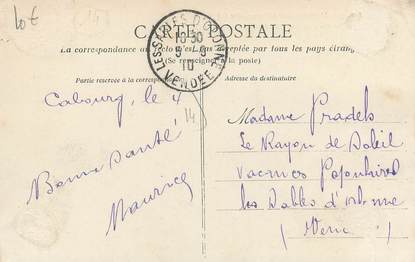 CARTE POSTALE
La correspondance au recto n'est pas acceptée par tous les pays étrang
(Se renseigner à la poste)
Partie reservée à la correspondance
Adresse du destinataire
LES-SABLES D'OLONNE
18 30
5 - 5
10
VENDEE
Cabourg, le 4
Bonne Santé
Maurice
14
Madame Pradels
Le Rayon de Soleil
Vacances Populaires
les Sables d'olonne